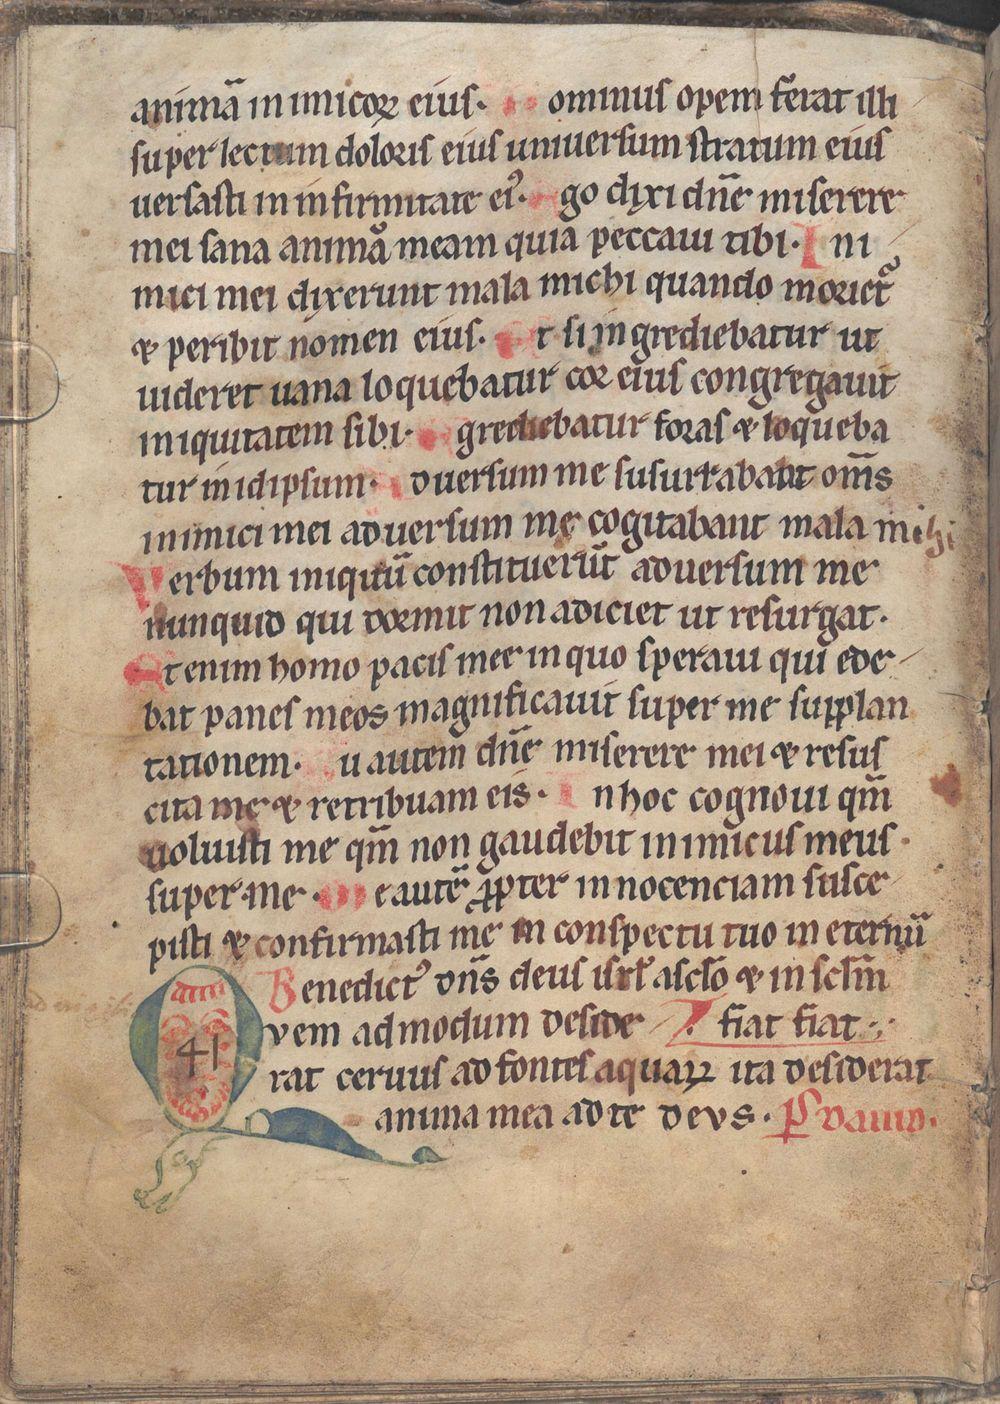 animā in imicoꝝ eius. ominus opem ferat illi
super lectum doloris eius universum stratum eius
uersasti in infirmitate eiꝰ. Ego dixi dn̄e miserere
mei sana animā meam quia peccaui tibi. Ini
mici mei dixerunt mala michi quando moriet᷑
⁊ peribit nomen eius. Et si ingrediebatur ut
uideret uana loquebatur cor eius congregauit
iniquitatem sibi. Egrediebatur foras ⁊ loqueba
tur in idipsum. Aduersum me susurrabant om̄s
inimici mei aduersum me cogitabant mala mihi
Verbum iniquū constituerūt aduersum me
nunquid qui dormit non adiciet ut resurgat.
Etenim homo pacis mee in quo speraui qui ede
bat panes meos magnificauit super me supplan
tationem. u autem dn̄e miserere mei ⁊ resus
cita me ⁊ retribuam eis. In hoc cognoui qm̄
uoluisti me qm̄ non gaudebit inimicus meus
super me. Me autē ꝓpter innocenciam susce
pisti ⁊ confirmasti me in conspectu tuo in eternū
Benedictꝰ dn̄s deus isrl̄ a sclo ⁊ in sclm̄
Qvem admodum deside fiat fiat.
41
rat ceruus ad fontes aquaꝝ ita desiderat
anima mea ad te devs. Ps̄ dauid.